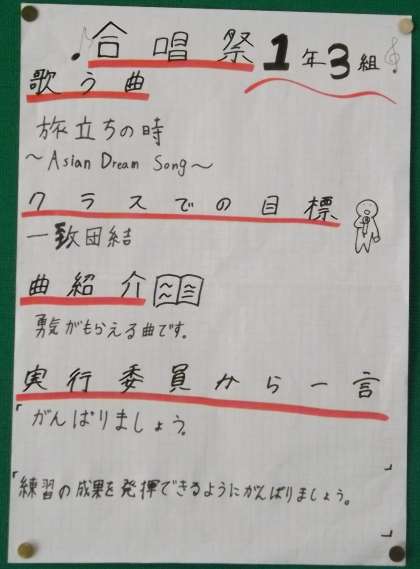 合唱祭 1年3組
歌う曲
旅立ちの時
～Asian Dream Song～
クラスでの目標
一致団結
曲紹介
勇気がもらえる曲です。
実行委員から一言
「がんばりましょう。
」
「練習の成果を発揮できるようにがんばりましょう。
」